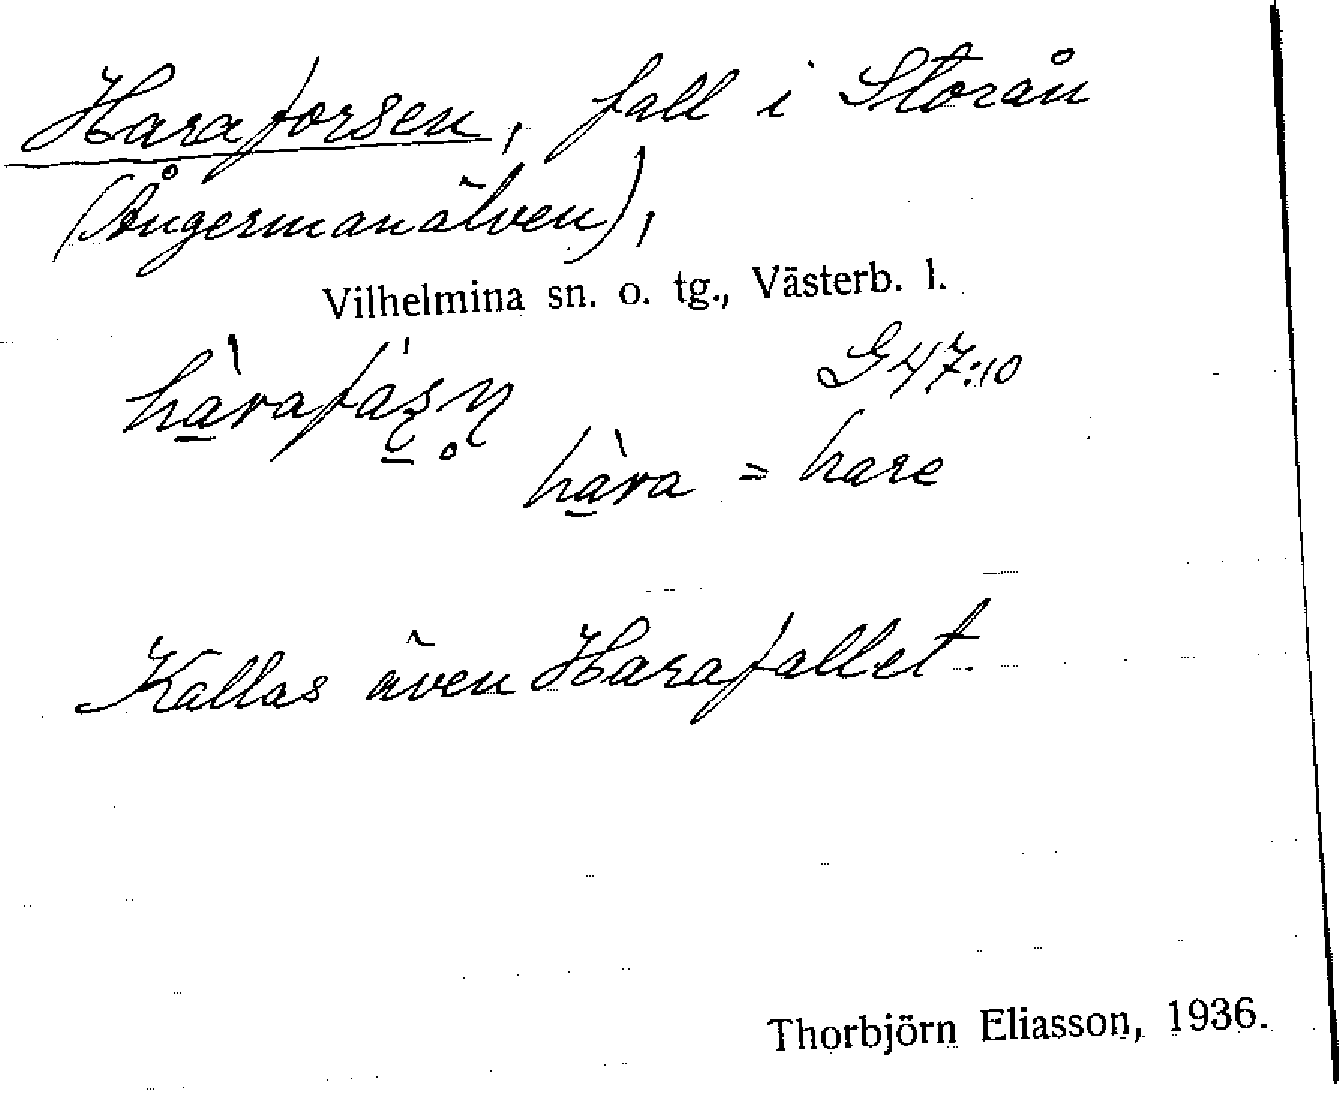 Haraforsen, fall i Storån
(Ångermanälven),
Vilhelmina sn. o. tg., Västerb. l.
G47:10
hà̱rafáʂ̱ŋ̥
hà̱ra = hare
Kallas även Harafallet.
Thorbjörn Eliasson, 1936.